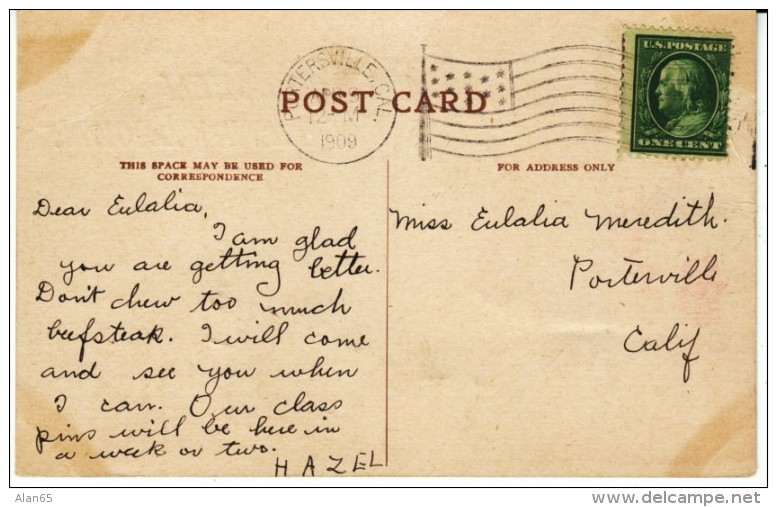 PORTERSVILLE, CAL.
12-M
1909
POST CARD
U.S. POSTAGE
ONE CENT
THIS SPACE MAY BE USED FOR
CORRESPONDENCE
FOR ADDRESS ONLY
Dear Eulalia,
I am glad
you are getting better.
Don't chew too much
beefsteak. I will come
and see you when
I can. Our class
pins will be here in
a week or two.
HAZEL
Miss Eulalia Meredith.
Porterville
Calif
Alan65
delcampe.net